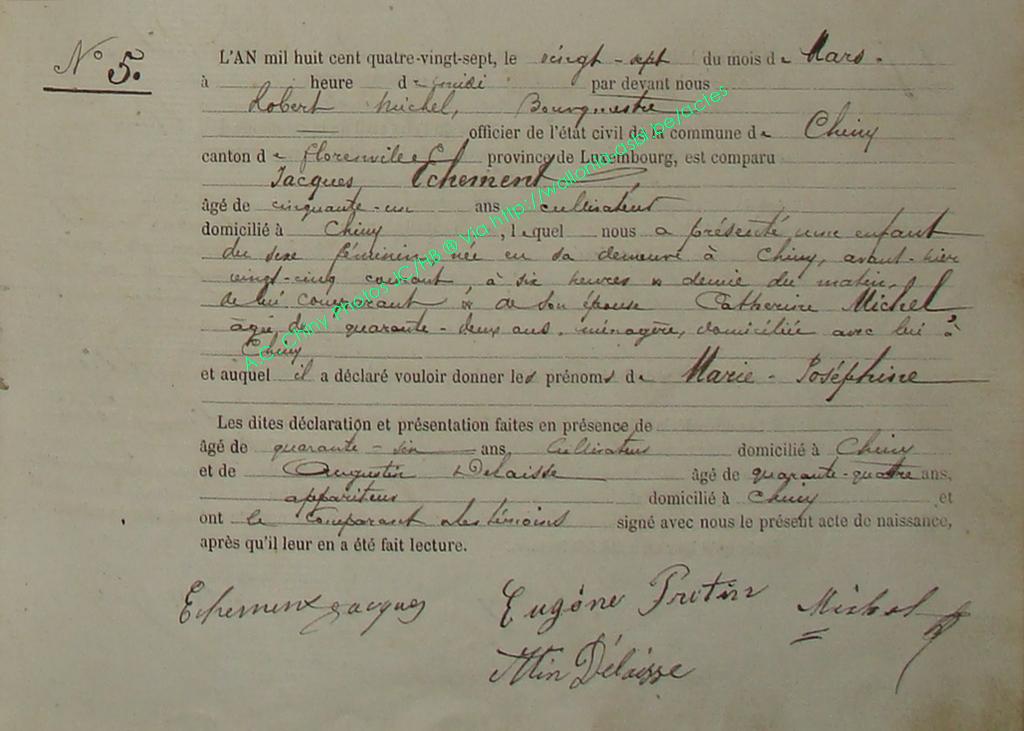 N° 5.
L'AN mil huit cent quatre-vingt-sept, le vingt-sept du mois de Mars.
à heure de midi par devant nous
Robert Michel, Bourgmestre
officier de l'état civil de la commune de Chiny
canton de Florenville province de Luxembourg, est comparu
Jacques, Echement
âgé de cinquante-un ans cultivateur
domicilié à Chiny, lequel nous a présenté une enfant
du sexe féminin née en sa demeure à Chiny, avant-hier
vingt-cinq courant, à six heures & demie du matin,
de lui comparant & de son épouse Catherine Michel,
âgée de quarante-deux ans, ménagère, domiciliée avec lui à
Chiny
et auquel il a déclaré vouloir donner les prénoms de Marie-Joséphine
Les dites déclaration et présentation faites en présence de
âgé de quarante-six ans cultivateur domicilié à Chiny
et de Augustin Delaisse âgé de quarante-quatre ans,
appariteur domicilié à Chiny et
ont le comparant & les témoins signé avec nous le présent acte de naissance,
après qu'il leur en a été fait lecture.
Echement Jacques Eugène Protin Michel
Attin Délaisse
A.C. Chiny Photos JC/HB ® Via http://wallonia-asbl.be/actes